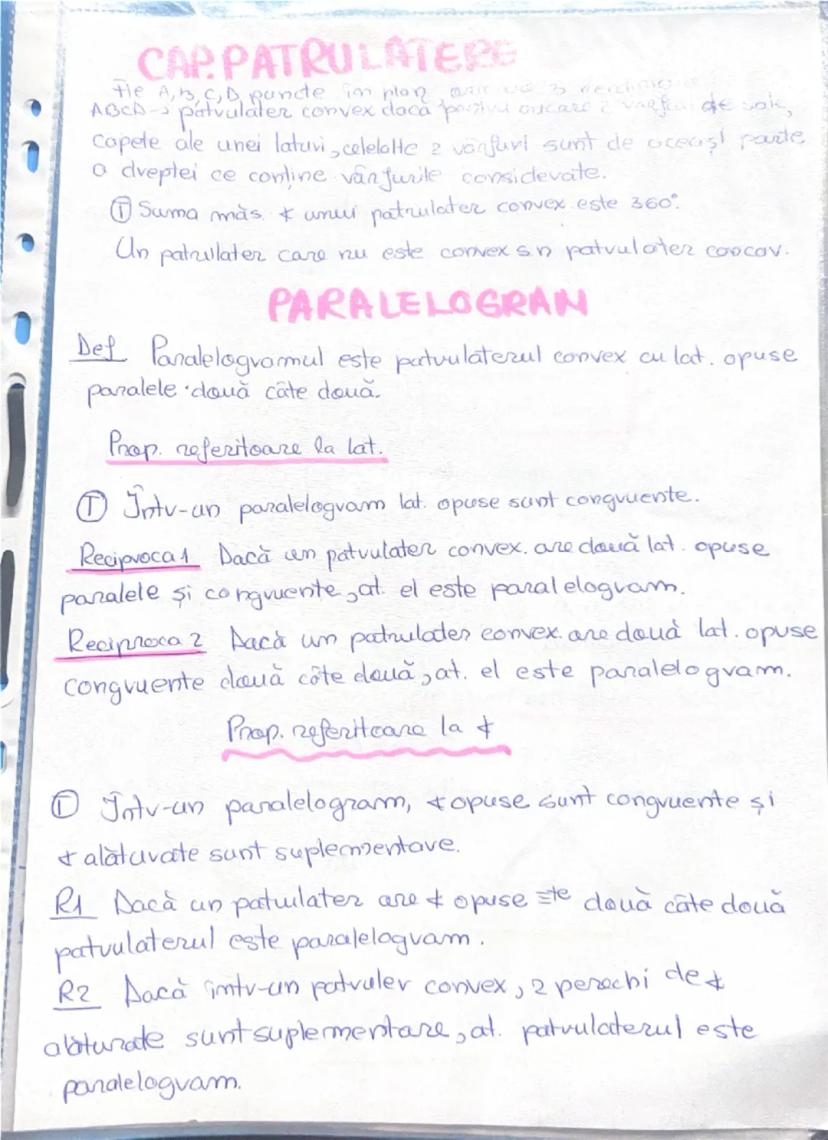 CAP. PATRULATERE
Fie A, B, C, D puncte în plan oricare 3
ABCD → patrulater convex dacă oricare 2 vârfuri de sale,
capete ale unei laturi, celelalte 2 vârfuri sunt de aceași parte
a dreptei ce conține vârfurile considerate.
Ⓣ Suma măs. ∢ unui patrulater convex este 360°.
Un patrullater care nu este convex s.n patrulater concav.
PARALELOGRAN
Def Paralelogramul este patrulaterul convex cu lat. opuse
paralele două câte două.
Prop. referitoare la lat.
Ⓣ Într-un paralelogram lat. opuse sunt congruente.
Reciproca 1 Dacă un patrulater convex. are două lat. opuse
paralele și congruente, at. el este paralelogram.
Reciproca 2 Dacă un patrulater convex. are două lat. opuse
congruente două câte două, at. el este paralelogram.
Prop. referitoare la ∢
Ⓣ Într-un paralelogram, ∢ opuse sunt congruente și
∢ alăturate sunt suplementare.
R1 Dacă un patrulater are ∢ opuse ≡te două câte două
patrulaterul este paralelogram.
R2 Dacă într-un patruler convex, 2 perechi de ∢
alăturate sunt suplementare, at. patrulaterul este
paralelogram.